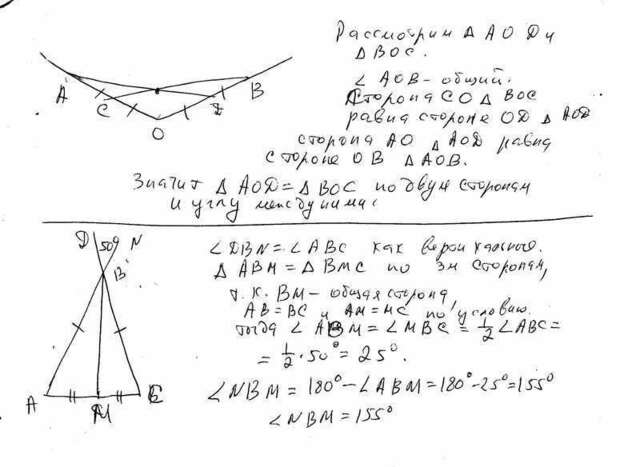 Рассмотрим Δ AOD и
Δ BOC.
∠ AOB - общий.
Сторона CO Δ BOC
равна стороне OD Δ AOD
сторона AO Δ AOD равна
стороне OB Δ AOB.
Значит Δ AOD = Δ BOC по двум сторонам
и углу между ними
A
C
O
B
D 50° N
B
A
M
C
∠ DBN = ∠ ABC как вертикальные.
Δ ABM = Δ BMC по 3м сторонам,
т.к. BM - общая сторона,
AB = BC и AM = MC по условию.
тогда ∠ ABM = ∠ MBC = 1/2 ∠ ABC =
= 1/2 · 50° = 25°.
∠ NBM = 180° - ∠ ABM = 180° - 25° = 155°
∠ NBM = 155°